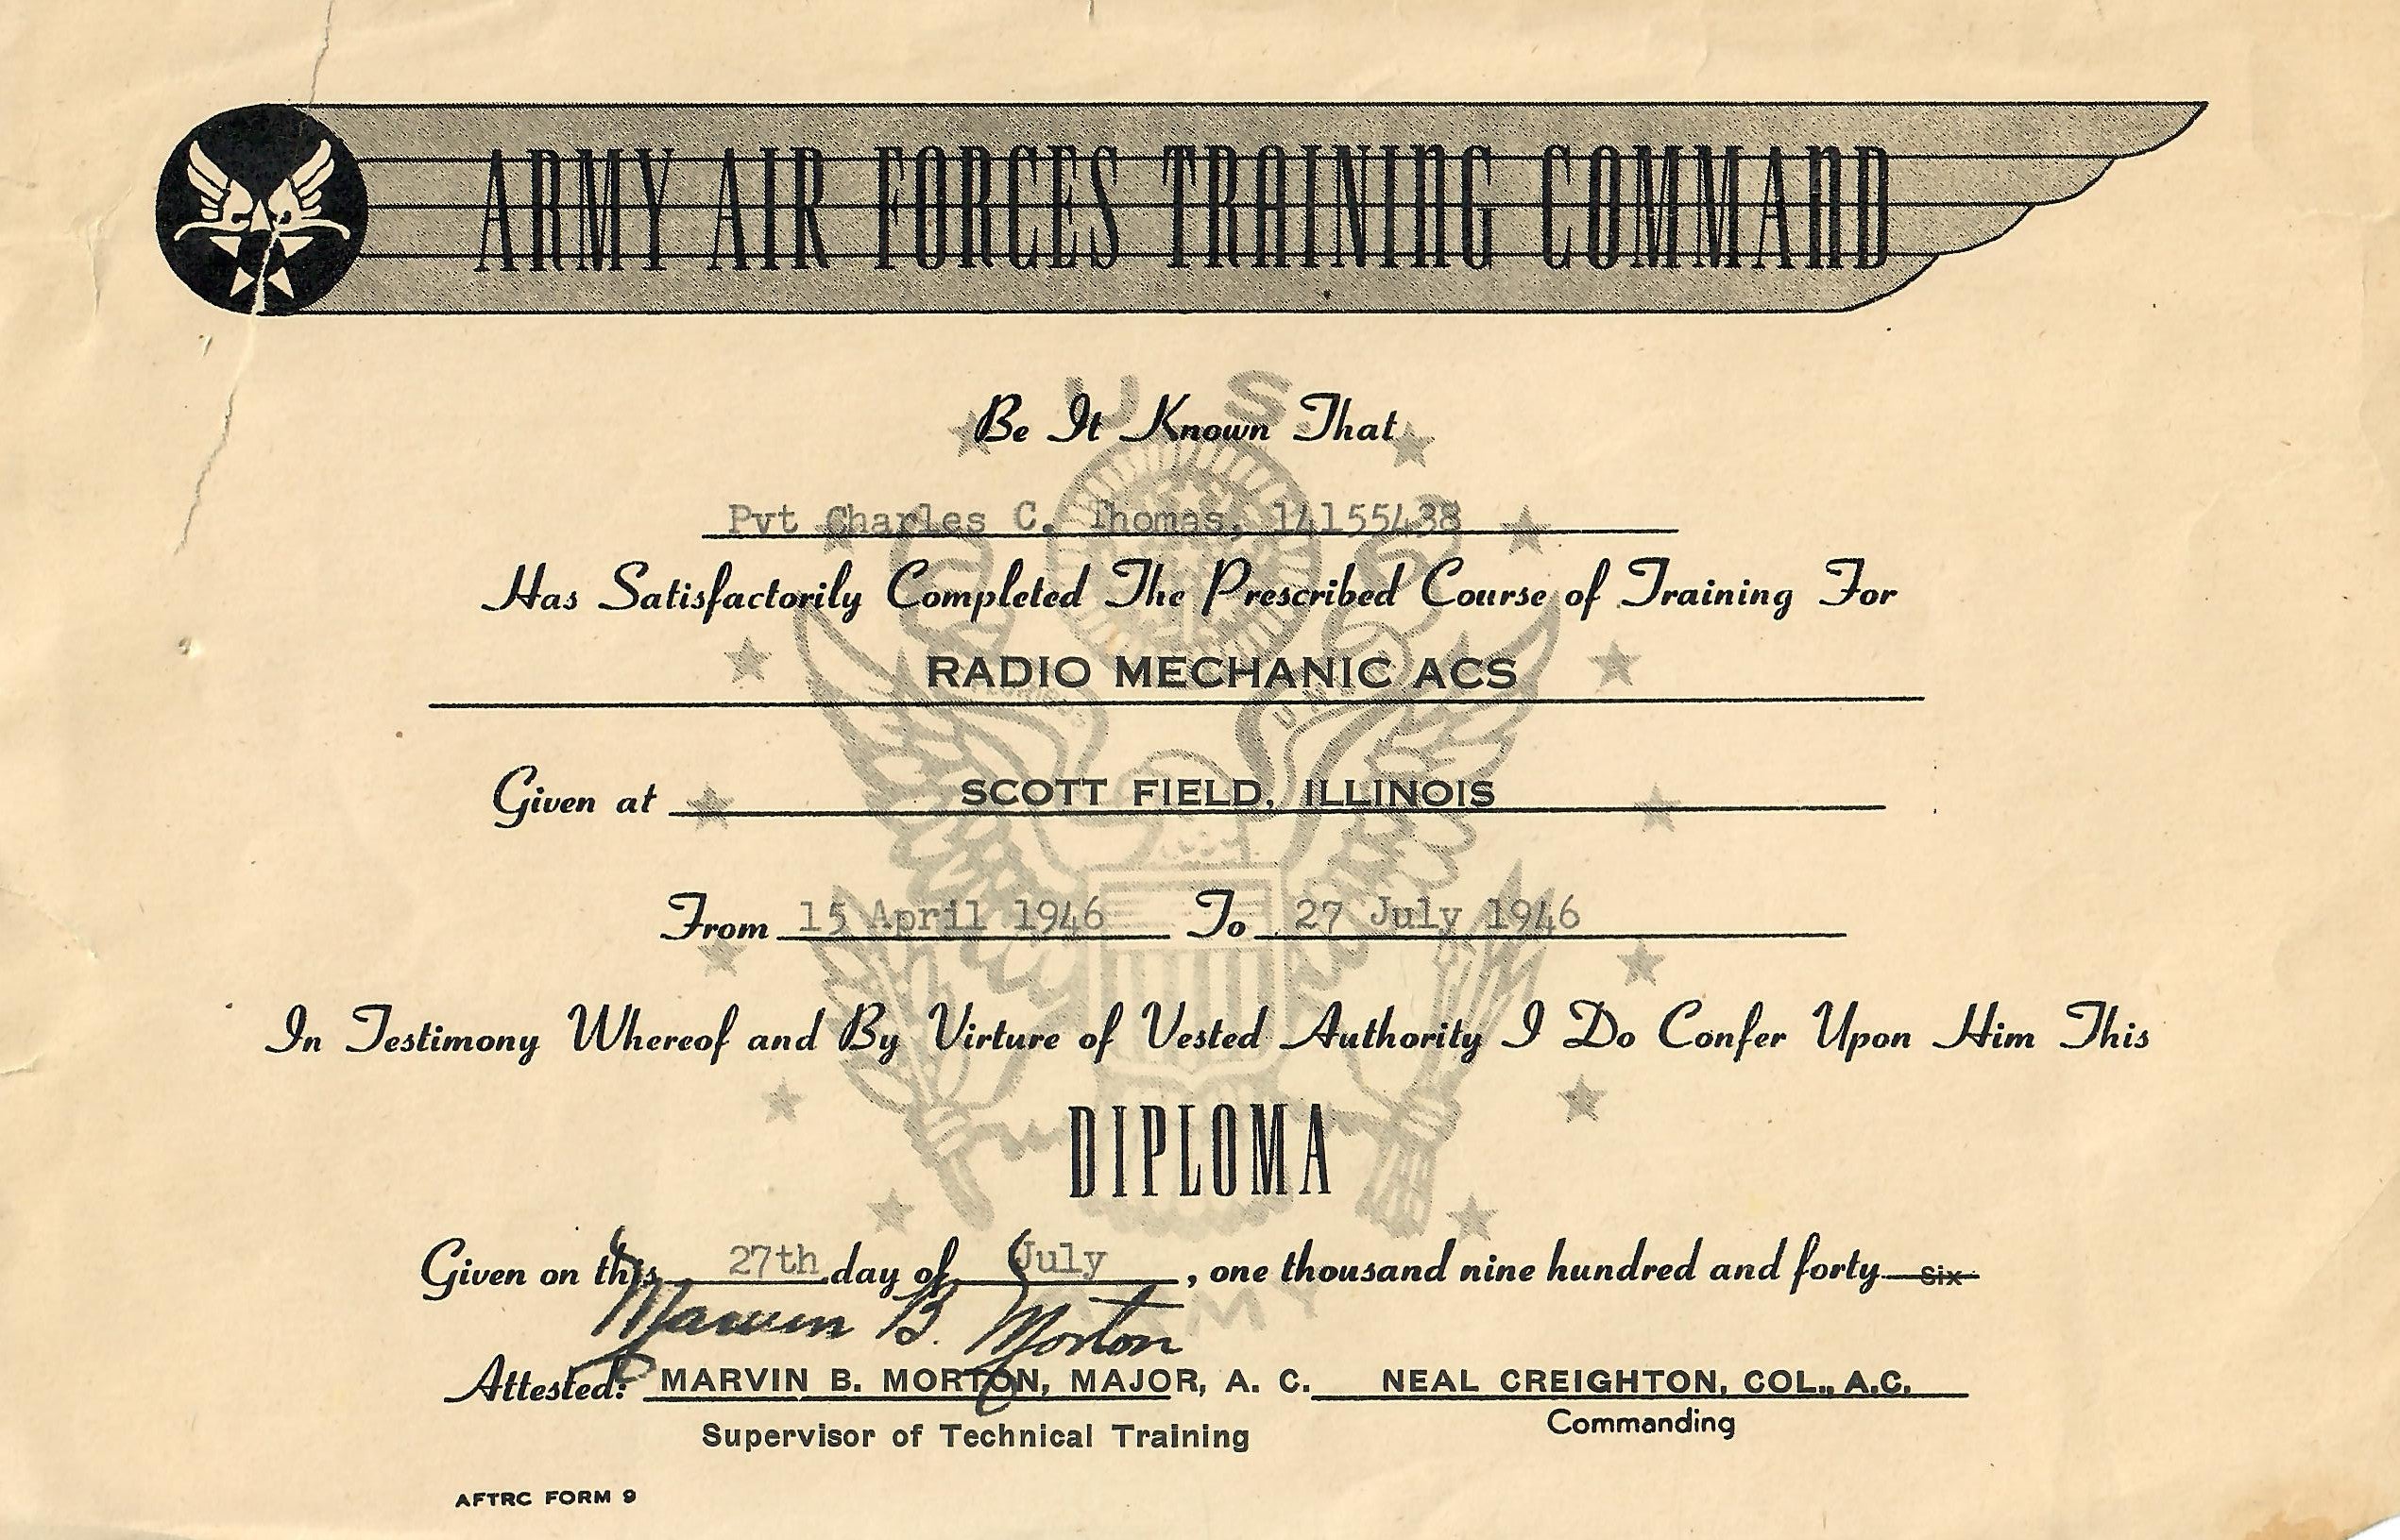 ARMY AIR FORCES TRAINING COMMAND
U S
Be It Known That
Pvt Charles C. Thomas, 14155438
Has Satisfactorily Completed The Prescribed Course of Training For
RADIO MECHANIC ACS
Given at SCOTT FIELD, ILLINOIS
From 15 April 1946 To 27 July 1946
In Testimony Whereof and By Virture of Vested Authority I Do Confer Upon Him This
DIPLOMA
Given on this 27th day of July, one thousand nine hundred and forty six
ARMY
Marvin B. Morton
Attested: MARVIN B. MORTON, MAJOR, A. C. NEAL CREIGHTON, COL., A.C.
Supervisor of Technical Training Commanding
AFTRC FORM 9